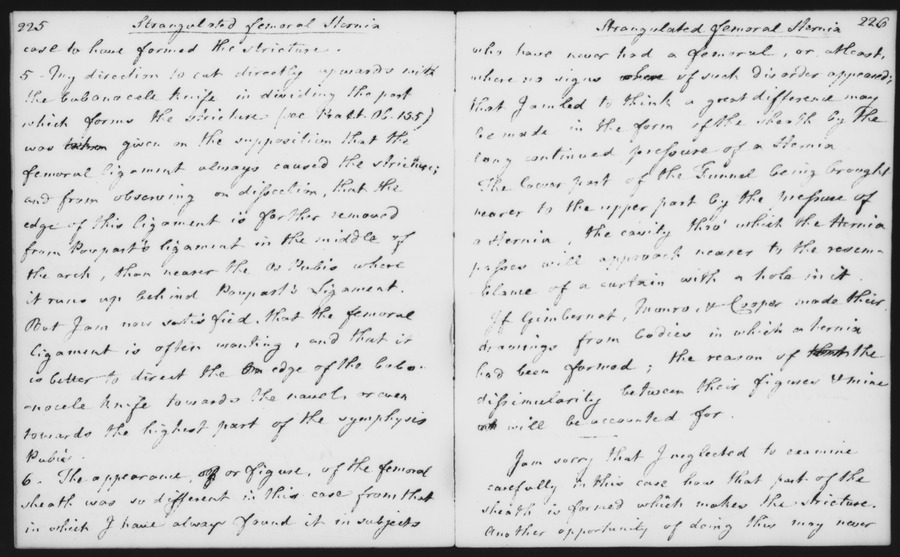 225 Strangulated femoral Hernia
case to have formed the stricture.
5 - My direction to cut directly upwards with
the bubonocele knife in dividing the part
which forms the stricture (vec Pract. Ob. 135)
was given on the supposition that the
femoral ligament always caused the stricture;
and from observing on dissection, that the
edge of this ligament is farther removed
from Poupart's ligament in the middle of
the arch, than nearer the Os Pubis where
it runs up behind Poupart's Ligament.
But I am now satisfied, that the femoral
ligament is often wanting, and that it
is better to direct the edge of the bubo-
-nocele knife towards the navel, or even
towards the highest part of the symphysis
Pubis.
6. The appearance, or figure, of the femoral
sheath was so different in this case from that
in which I have always found it in subjects
Strangulated femoral Hernia 226
who have never had a femoral, or atleast,
where no signs of such disorder appeared;
that I am led to think a great difference may
be made in the form of the sheath by the
long continued pressure of a Hernia
The lower part of the Funnel being brought
nearer to the upper part by the pressure of
a Hernia, the cavity thro' which the Hernia
passes will approach nearer to the resem-
blance of a curtain with a hole in it.
If Gimbernat, Monro, & Cooper made their
drawings from bodies in which a hernia
had been formed; the reason of the
dissimularity between their figures & mine
will be accounted for.
I am sorry that I neglected to examine
carefully in this case how that part of the
sheath is formed which makes the stricture.
Another opportunity of doing this may never